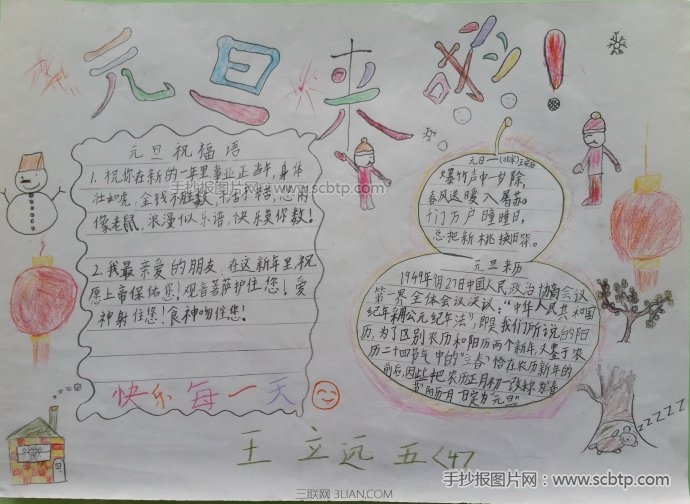 元旦来啦!
元旦祝福语
1. 祝你在新的一年里事业正当午,身体
壮如虎,金钱不胜数,干活不辛苦,悠闲
像老鼠,浪漫似乐谱,快乐莫你数!
2. 我最亲爱的朋友,在这新年里祝
原上帝保佑您!观音菩萨护住您!爱
神射住您!食神吻住您!
快乐每一天
元日——(北宋)王安石
爆竹声中一岁除,
春风送暖入屠苏。
千门万户曈曈日,
总把新桃换旧符。
元旦来历
1949年9月27日中国人民政治协商会议
第一界全体会议决议:“中华人民共和国
纪年采用公元纪年法”,即是我们所说的阳
历,为了区别农历和阳历两个新年,又鉴于农
历二十四节气中的“立春”恰在农历新年的
前后,因此把农历正月初一改称为“春
阳历一月一日定为“元旦”
ZZZZZ
王立远 五<4>
手抄报图片网:www.scbtp.com
手抄报图片网:www.scbtp.com
手抄报图片网:scbtp.com
三联网 3LIAN.COM